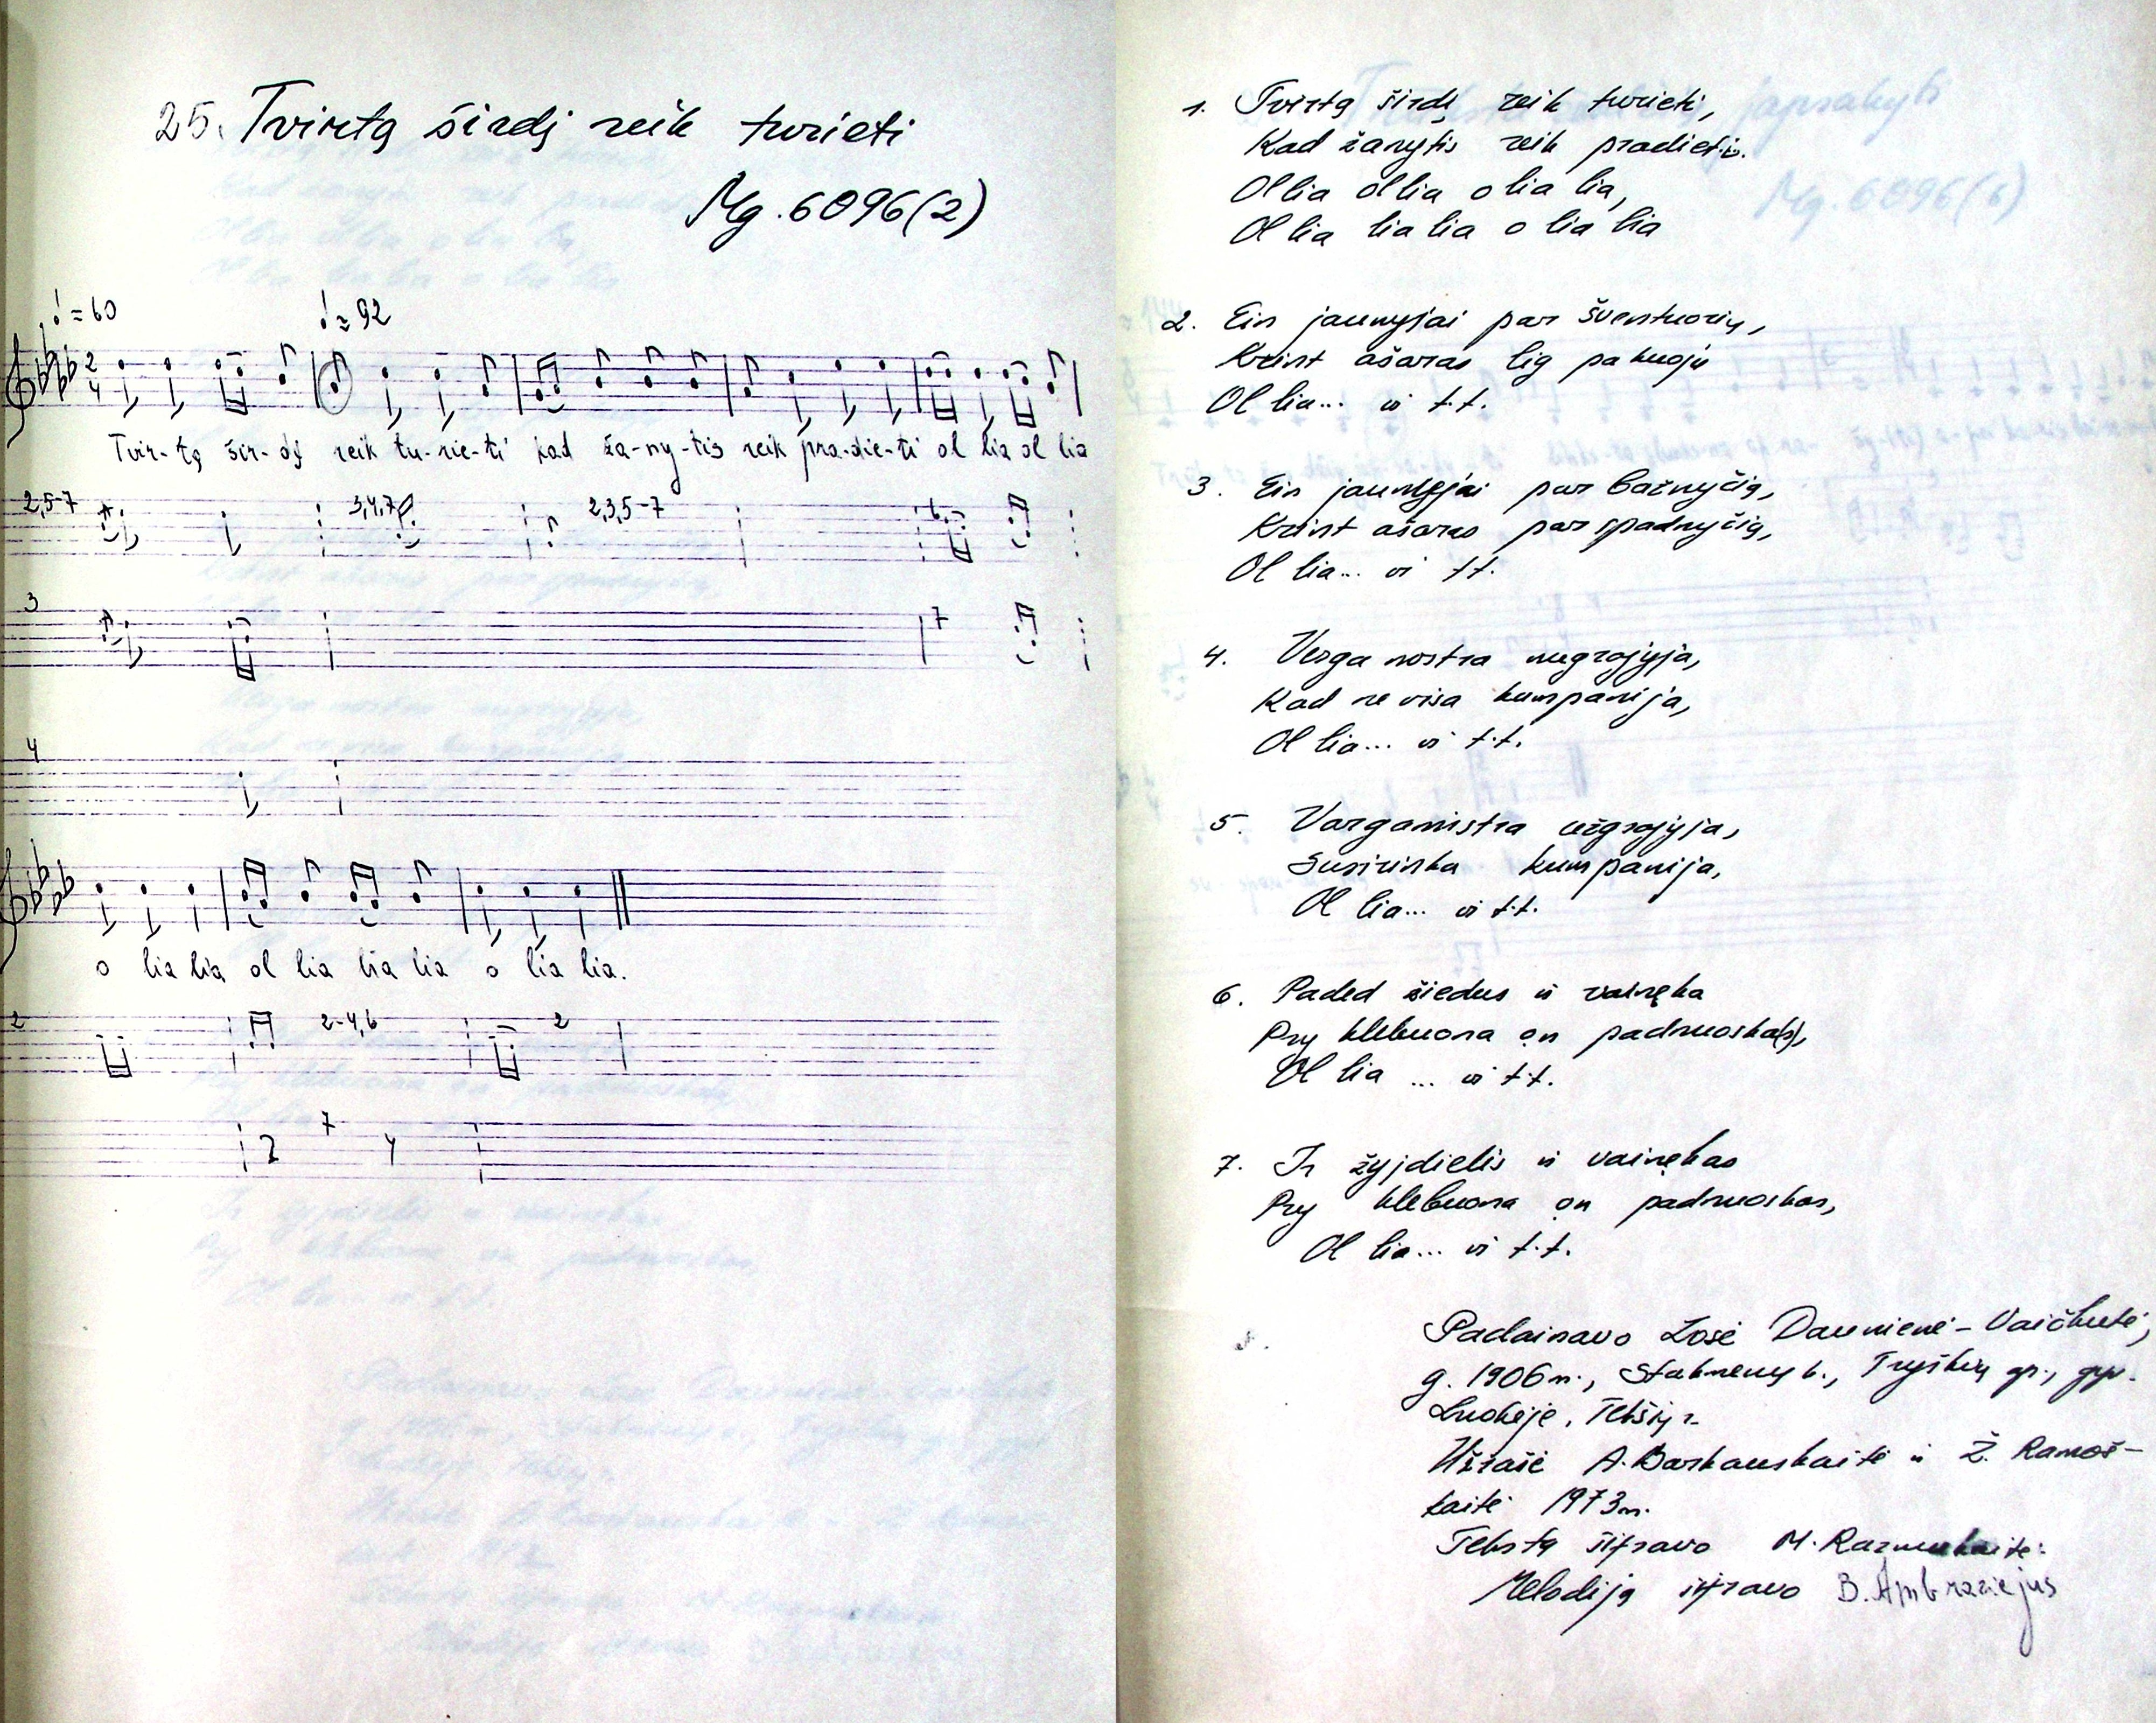 25. Tvirtą širdį reik turieti
Mg. 6096(2)
♩=60
♩≈92
2
4
Tvir-tą šir-dį reik tu-rie-ti kad ža-ny-tis reik pra-die-ti ol lia ol lia
2,5-7 3,4,7 2,3,5-7 6
3 7
4
o lia lia ol lia lia lia o lia lia.
2 2-4,6 2
7
1. Tvirtą širdį reik turieti,
Kad žanytis reik pradieti.
Ollia ollia olia lia,
Ol lia lia lia o lia lia
2. Ein jaunyjai par šventuorių,
Krint ašaras lig pakuojų
Ol lia... ir t.t.
3. Ein jaunyjai par bažnyčią,
Krint ašaras par spadnyčią,
Ol lia... ir t.t.
4. Varganostra nugrajyja,
Kad ne visa kumpanija,
Ol lia... ir t.t.
5. Varganistra užgrajyja,
Susirinka kumpanija,
Ol lia... ir t.t.
6. Paded žiedus ir vainęka
Pry klebuona on padnuoska(s),
Ol lia ... ir t.t.
7. Ir žyjdielis ir vainękas
Pry klebuona on padnuoskas,
Ol lia... ir t.t.
Padainavo Zosė Daunienė-Vaičkutė,
g. 1906 m., Stakmenų k., Tryškių ap., gyv.
Luokėje, Telšių r.
Užrašė A. Barkauskaitė ir Ž. Ramoš-
kaitė 1973m.
Tekstą šifravo M. Razmukaitė.
Melodiją šifravo B. Ambraziejus